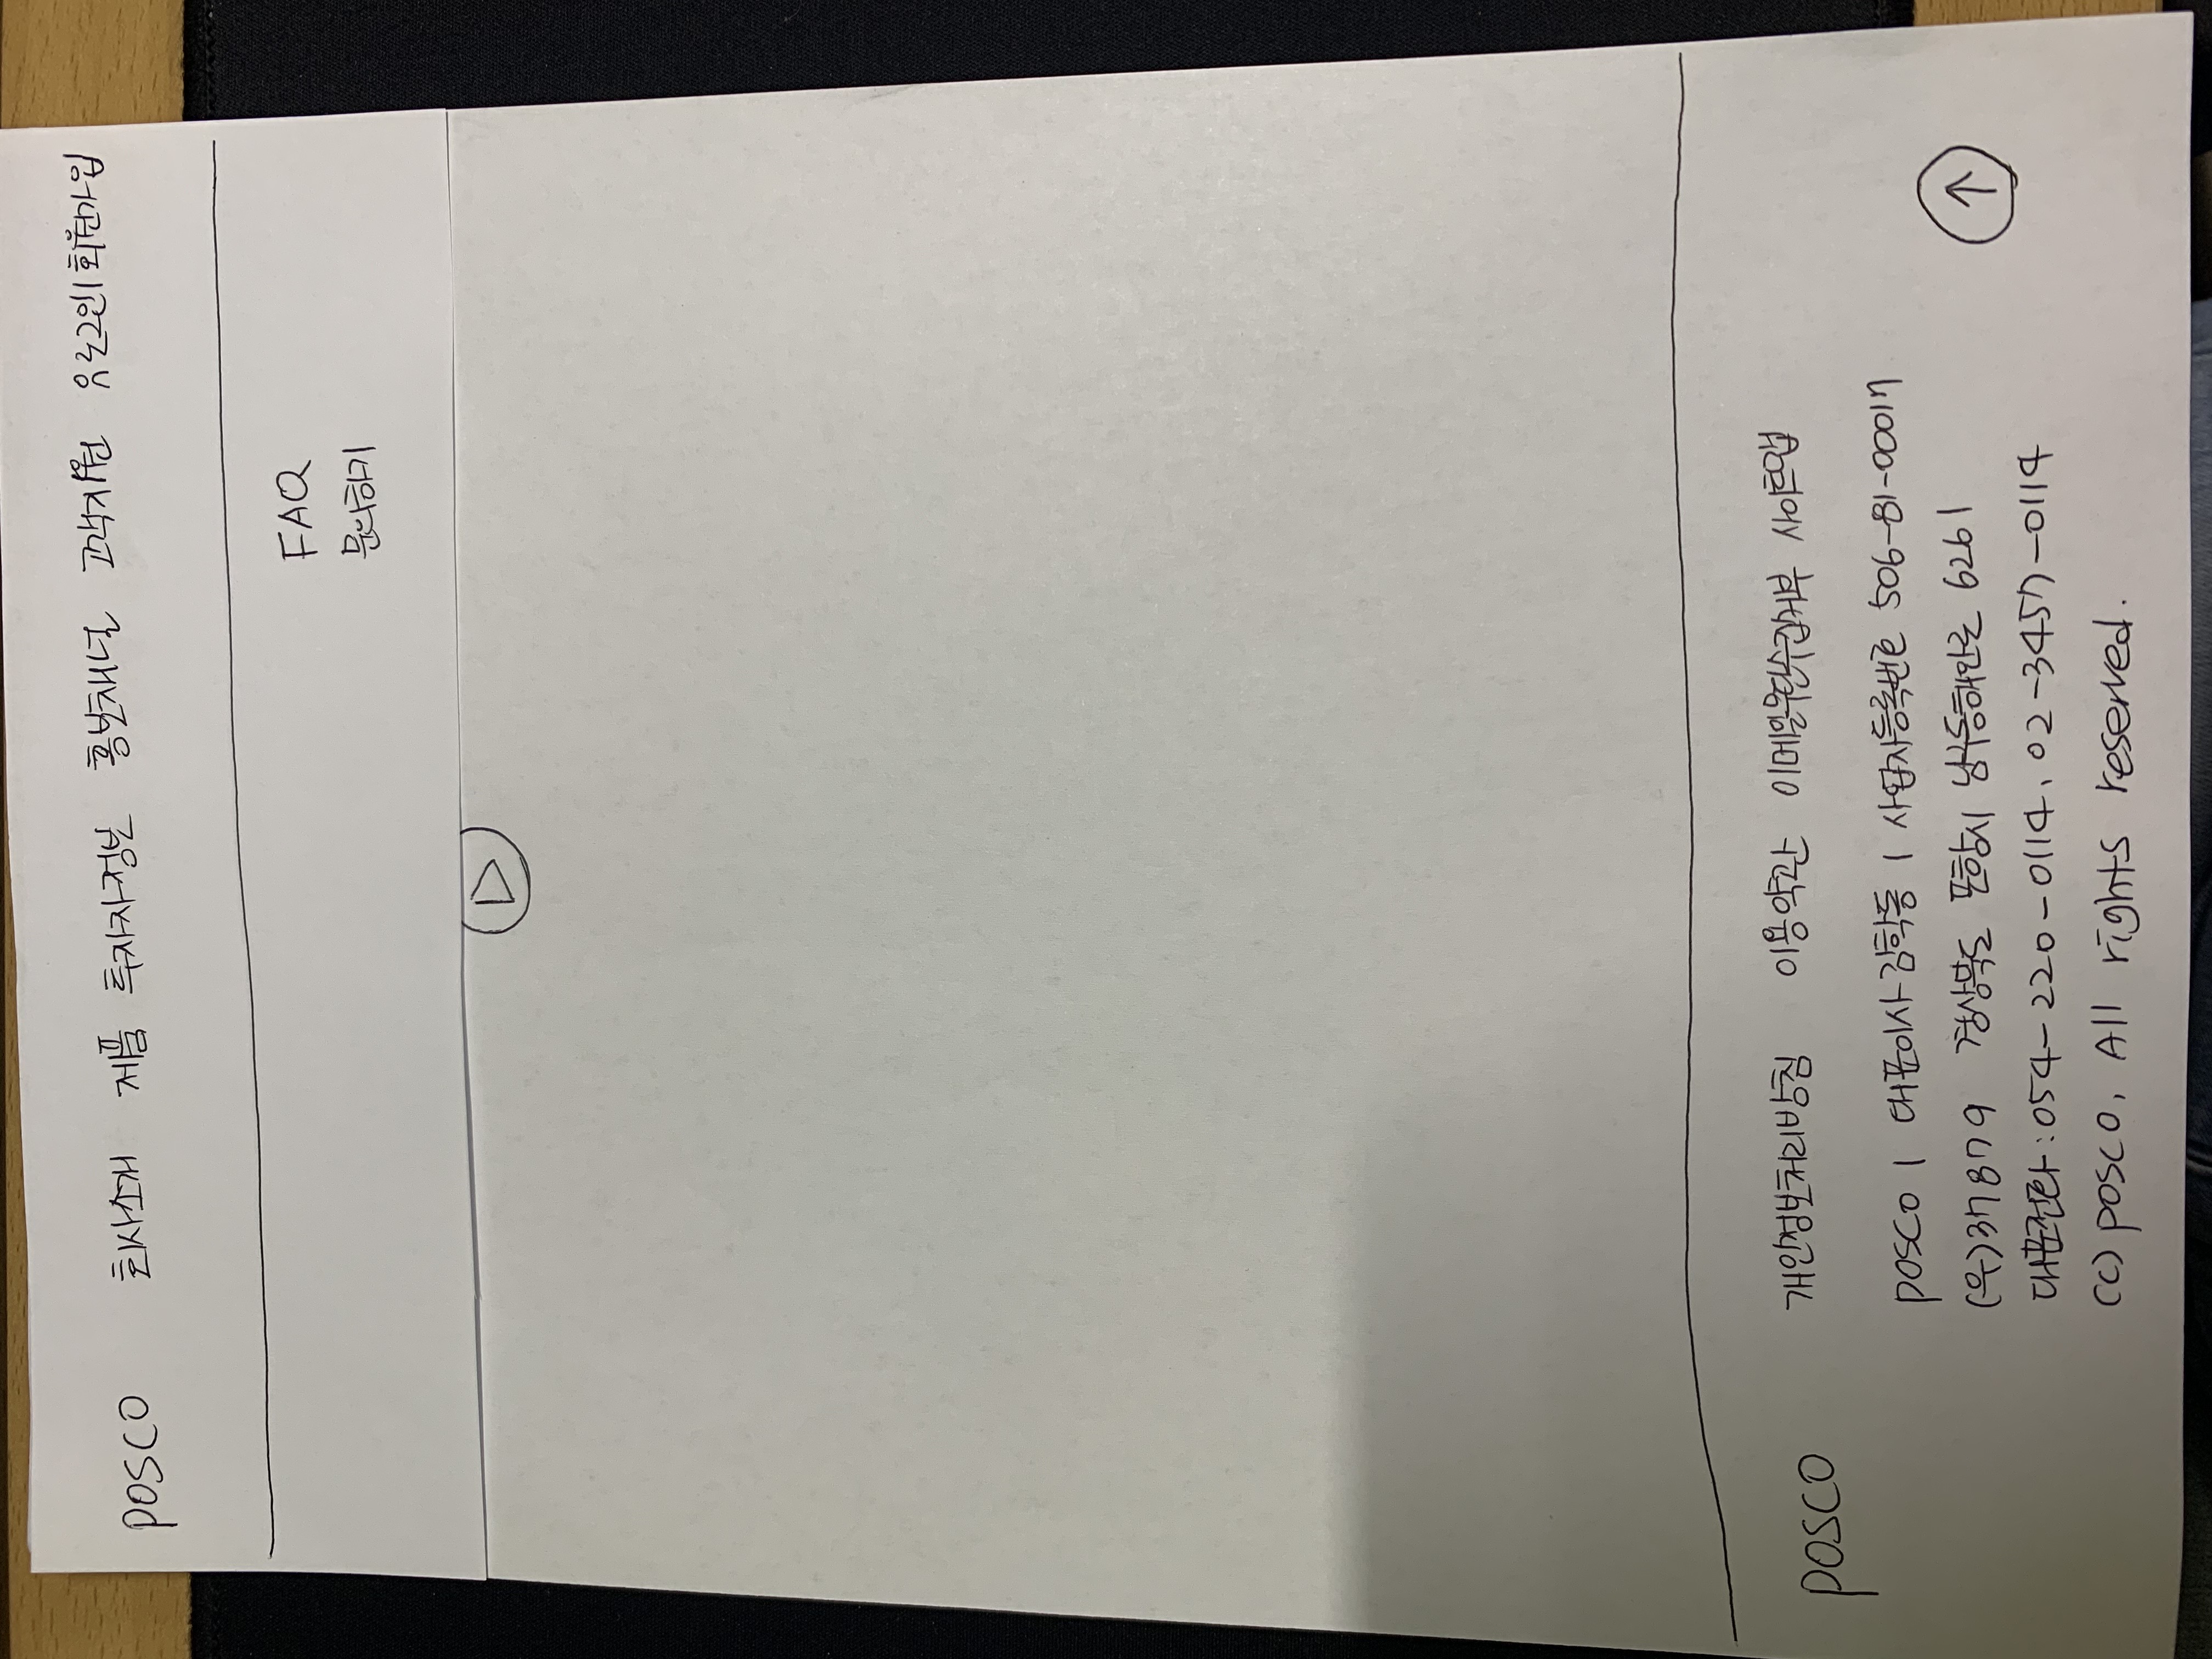 POSCO 회사소개 제품 투자자정보 홍보채널 고객지원 유로그인 | 회원가입
FAQ
문의하기
POSCO
개인정보처리방침 이용약관 이메일무단수집거부 사이트맵
POSCO | 대표이사 김학동 | 사업자등록번호 506-81-00017
(우)37879 경상북도 포항시 남구동해안로 6261
대표전화 : 054-220-0114, 02-3457-0114
(C) POSCO, All rights reserved.